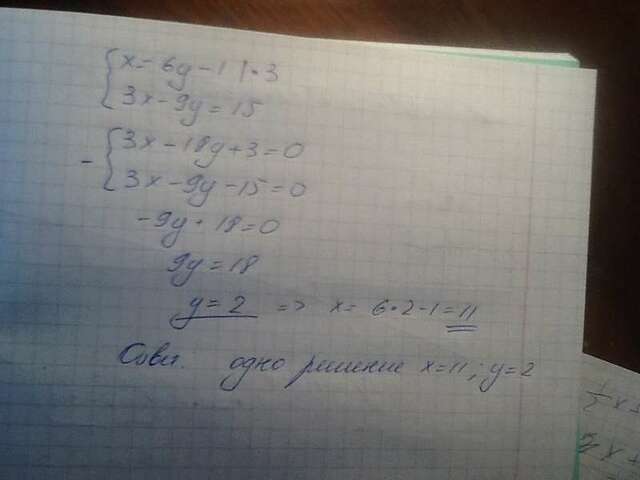 { x = 6y - 1 | · 3
3x - 9y = 15
- { 3x - 18y + 3 = 0
3x - 9y - 15 = 0
-9y + 18 = 0
9y = 18
y = 2 => x = 6 · 2 - 1 = 11
одно решение x = 11; y = 2
1/2 x
x +